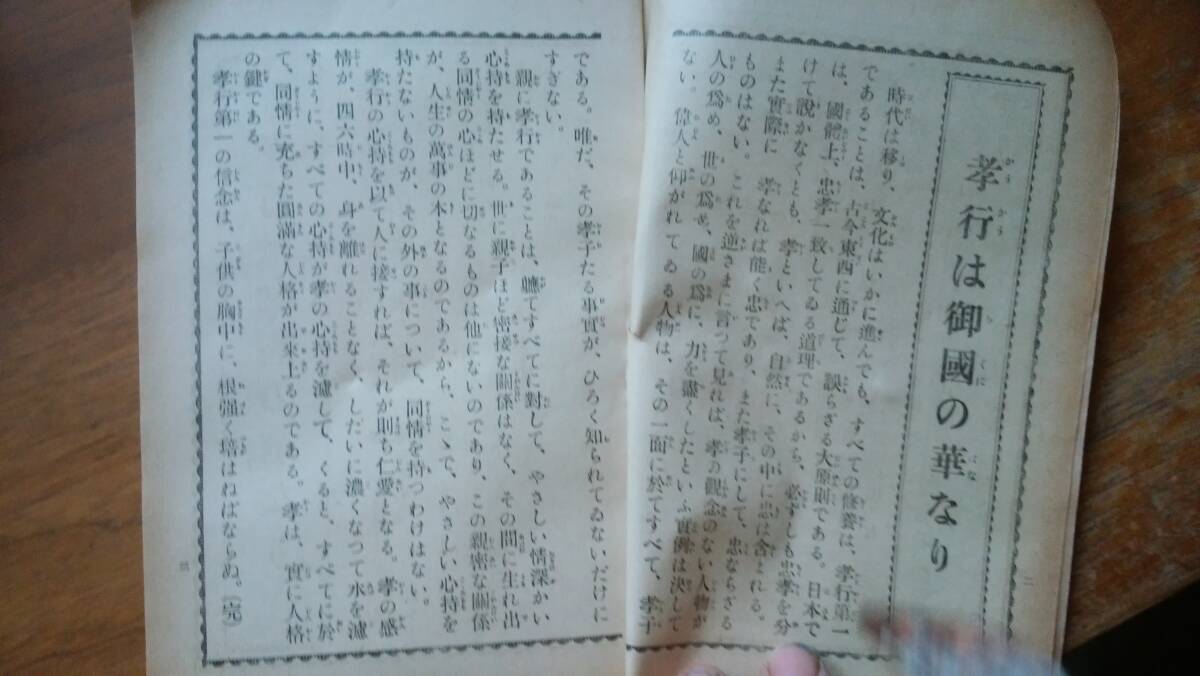 孝行は御國の華なり
時代は移り、文化はいかに進んでも、すべての修養は、孝行第一
であることは、古今東西に通じて、誤らざる大原則である。日本で
は、國體上、忠孝一致してゐる道理であるから、必ずしも忠孝を分
けて説かなくとも、孝といへば、自然に、その中に忠は含まれる。
また實際に 孝なれば能く忠であり、また孝子にして、忠ならざる
ものはない。これを逆さまに言つて見れば、孝の觀念のない人物が
人の爲め、世の爲め、國の爲に、力を盡くしたといふ實例は決して
ない。偉人と仰がれてゐる人物は、その一面に於てすべて、孝子
二
である。唯だ、その孝子たる事實が、ひろく知られてゐないだけに
すぎない。
親に孝行であることは、軈てすべてに對して、やさしい情深かい
心持を持たせる。世に親子ほど密接な關係はなく、その間に生れ出
る同情の心ほどに切なるものは他にないのであり、この親密な關係
が、人生の萬事の本となるのであるから、こゝで、やさしい心持を
持たないものが、その外の事について、同情を持つわけはない。
孝行の心持を以て人に接すれば、それが則ち仁愛となる。孝の感
情が、四六時中、身を離れることなく、しだいに濃くなつて水を濾
すように、すべての心持が孝の心持を濾して、くると、すべてに於
て、同情に充ちた圓滿な人格が出來上るのである。孝は、實に人格
の鍵である。
孝行第一の信念は、子供の胸中に、根强く培はねばならぬ。（完）